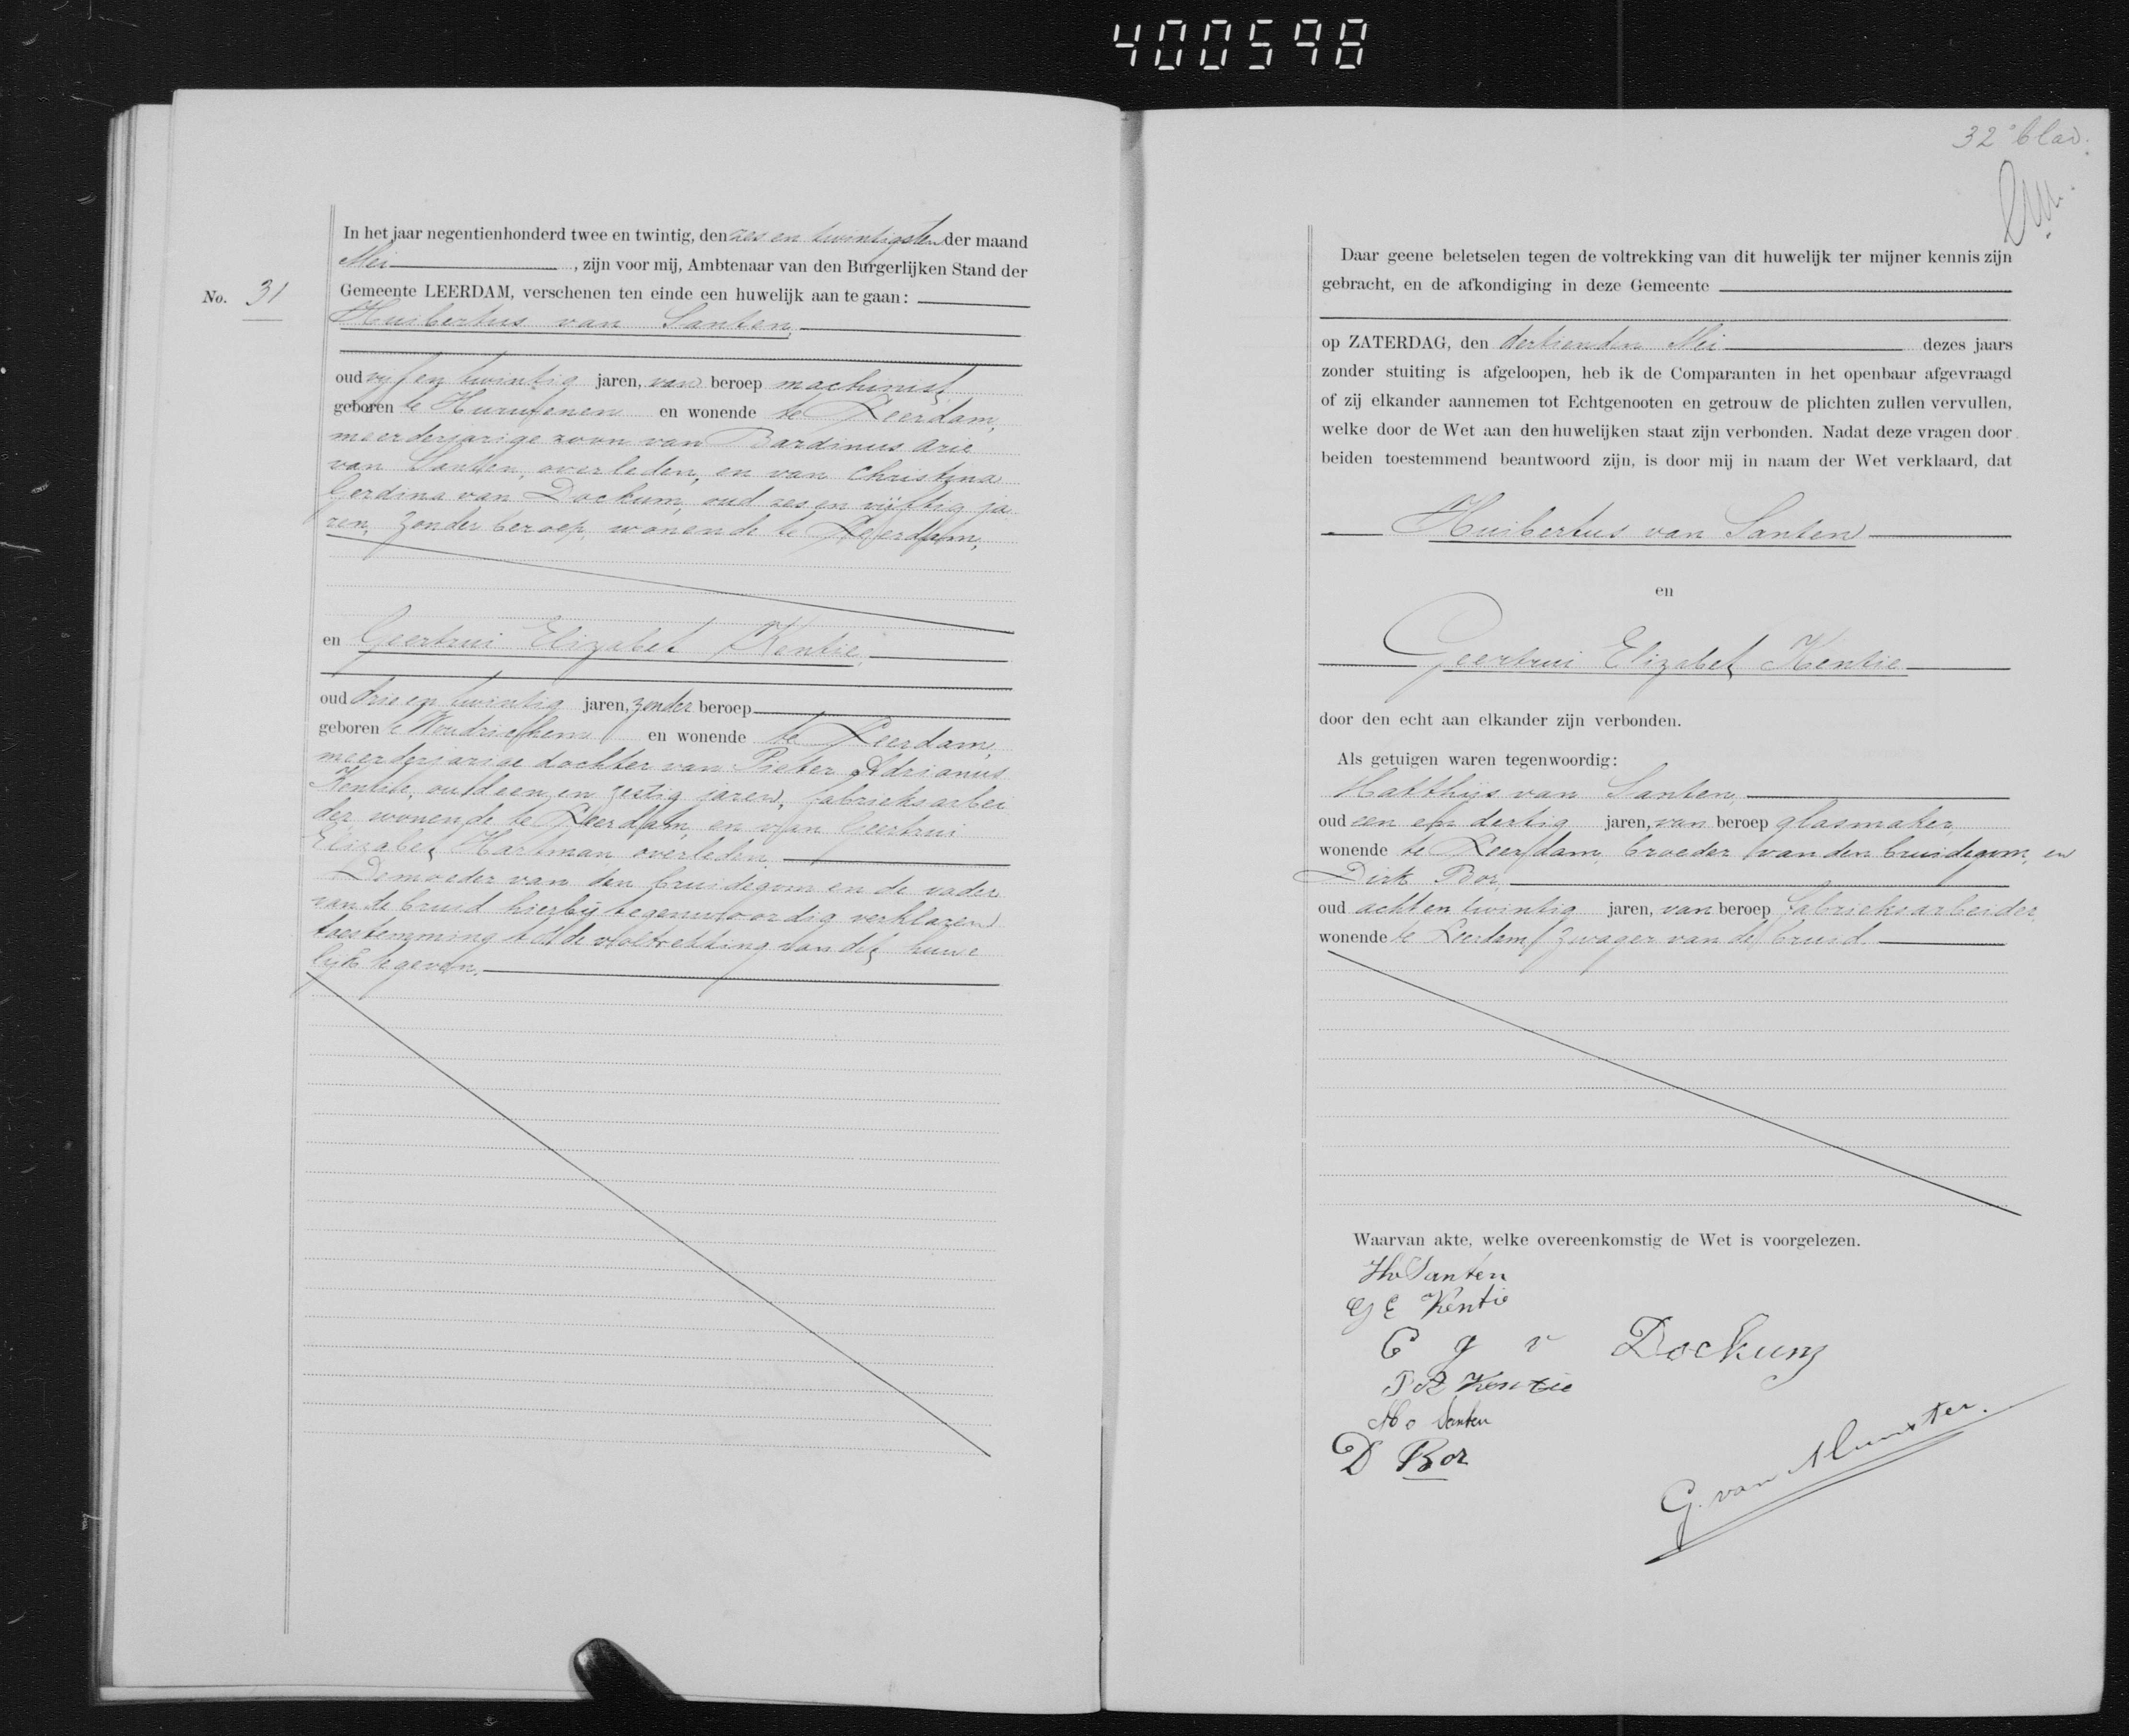 400598
In het jaar negentienhonderd twee en twintig, den zes en twintigsten der maand
Mei, zijn voor mij, Ambtenaar van den Burgerlijken Stand der
No. 31
Gemeente LEERDAM, verschenen ten einde een huwelijk aan te gaan:
Huibertus van Santen,
oud vyf en twintig jaren, van beroep machinist,
geboren te Hurwenen en wonende te Leerdam,
meerderjarige zoon van Bardinus Arie
van Santen, overleden, en van Christina
Gerdina van Dockum, oud zes en vijftig ja
ren, zonder beroep, wonende te Leerdam,
en Geertrui Elizabet Kentie,
oud drie en twintig jaren, zonder beroep
geboren te Woudrichem en wonende te Leerdam,
meerderjarige dochter van Pieter Adrianus
Kentie, oud een en zestig jaren, fabrieksarbei
der, wonende te Leerdam, en van Geertrui
Elizabet Hartman, overleden.
De moeder van den bruidegom en de vader
van de bruid hierby tegenwoordig verklaren
toestemming tot de voltrekking van dit huwe
lyk te geven.
32e blad.
Daar geene beletselen tegen de voltrekking van dit huwelijk ter mijner kennis zijn
gebracht, en de afkondiging in deze Gemeente
op ZATERDAG, den dertienden Mei dezes jaars
zonder stuiting is afgeloopen, heb ik de Comparanten in het openbaar afgevraagd
of zij elkander aannemen tot Echtgenooten en getrouw de plichten zullen vervullen,
welke door de Wet aan den huwelijken staat zijn verbonden. Nadat deze vragen door
beiden toestemmend beantwoord zijn, is door mij in naam der Wet verklaard, dat
Huibertus van Santen
en
Geertrui Elizabet Kentie
door den echt aan elkander zijn verbonden.
Als getuigen waren tegenwoordig:
Matthijs van Santen,
oud een en dertig jaren, van beroep glasmaker,
wonende te Leerdam, broeder van den bruidegom, en
Dirk Bor,
oud acht en twintig jaren, van beroep fabrieksarbeider,
wonende te Leerdam, zwager van de bruid.
Waarvan akte, welke overeenkomstig de Wet is voorgelezen.
Hv Santen
G E Kentie
C g v Dockum
P A Kentie
M v Santen
D Bor
G. van Munster.